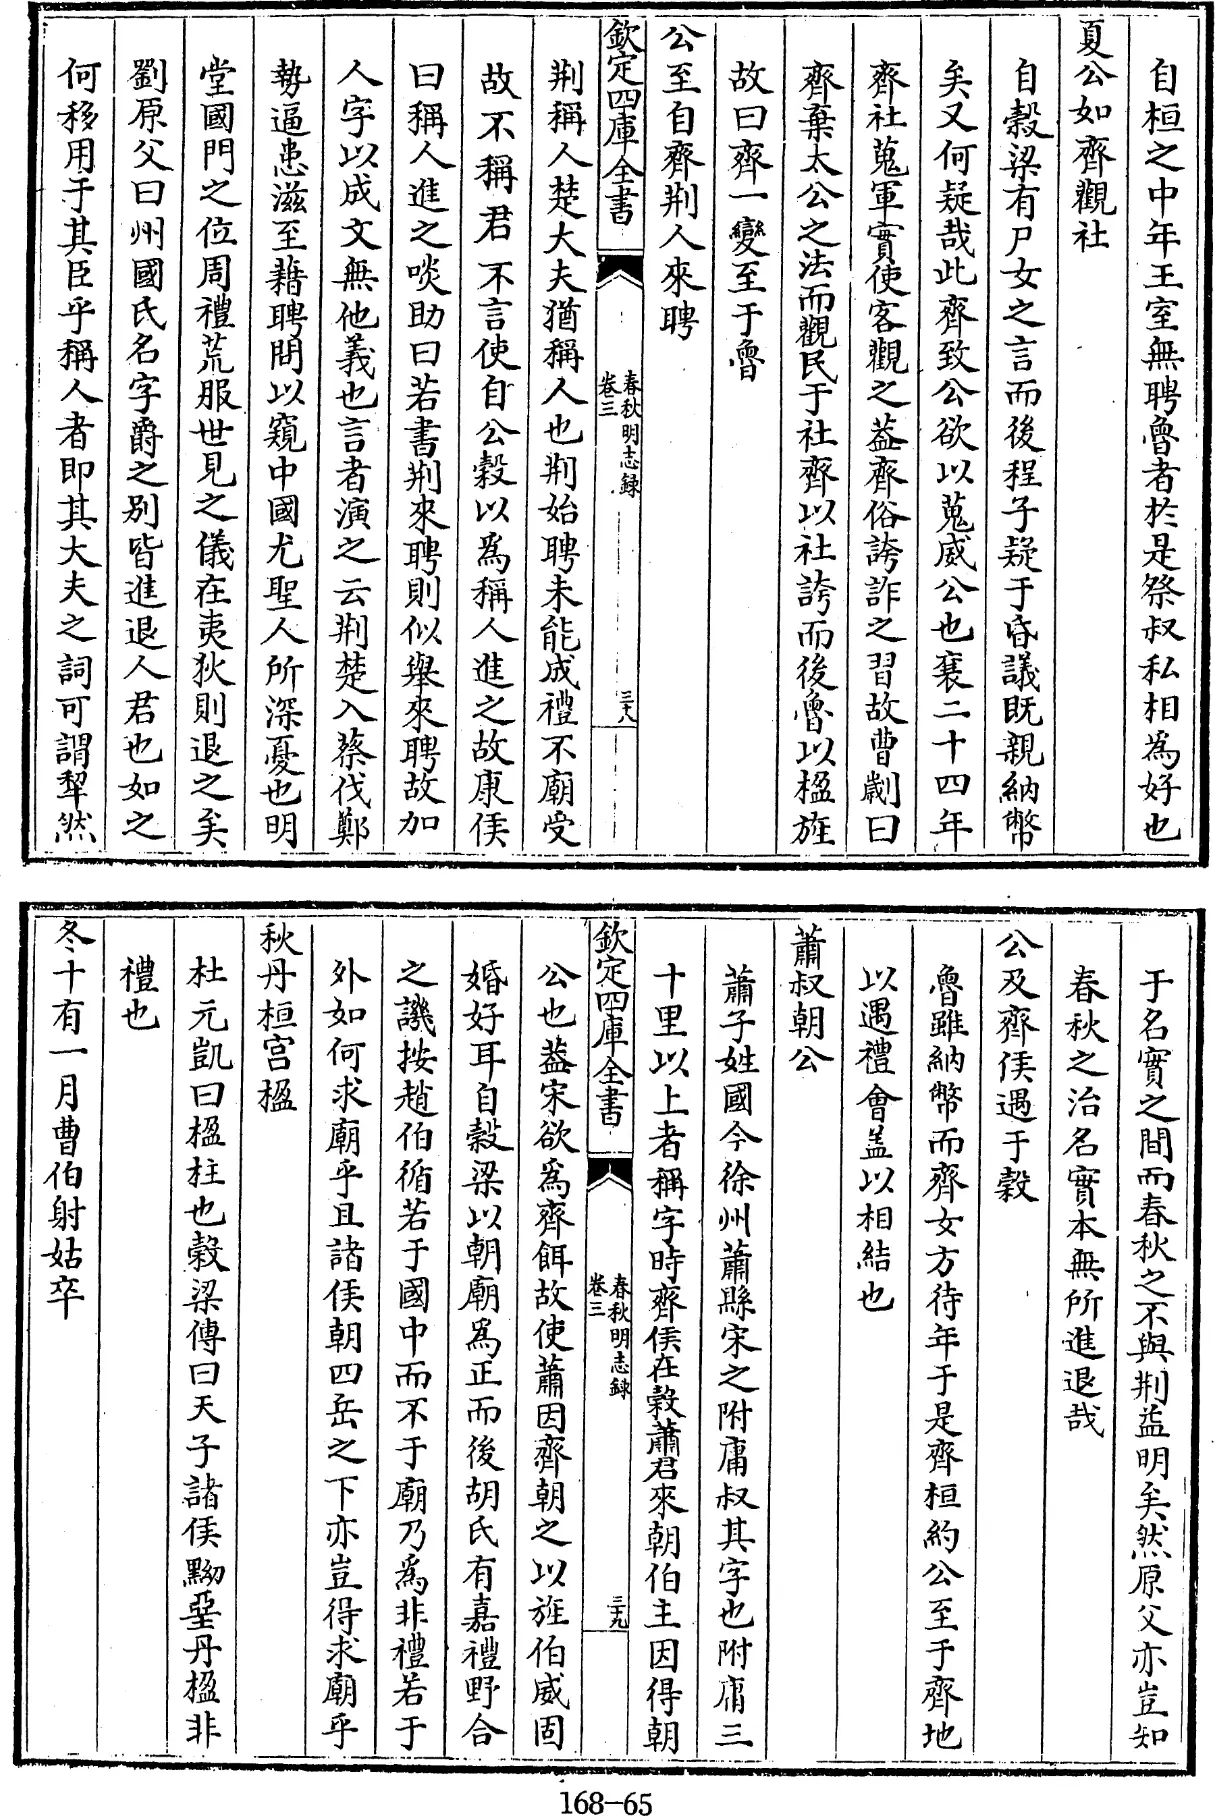 自桓之中年王室無聘魯者於是祭叔私相為好也
夏公如齊觀社
自穀梁有尸女之言而後程子疑于昏議既親納幣
矣又何疑哉此齊致公欲以蒐威公也襄二十四年
齊社蒐軍實使客觀之葢齊俗誇詐之習故曹劌曰
齊棄太公之法而觀民于社齊以社誇而後魯以楹旌
故曰齊一變至于魯
公至自齊荆人來聘
欽定四庫全書
春秋明志録
卷三
三十八
荆稱人楚大夫猶稱人也荆始聘未能成禮不廟受
故不稱君不言使自公穀以為稱人進之故康侯
曰稱人進之啖助曰若書荆來聘則似舉來聘故加
人字以成文無他義也言者演之云荆楚入蔡伐鄭
勢逼患滋至藉聘問以窺中國尤聖人所深憂也明
堂國門之位周禮荒服世見之儀在夷狄則退之矣
劉原父曰州國氏名字爵之别皆進退人君也如之
何移用于其臣乎稱人者即其大夫之詞可謂犂然
于名實之間而春秋之不與荆益明矣然原父亦豈知
春秋之治名實本無所進退哉
公及齊侯遇于穀
魯雖納幣而齊女方待年于是齊桓約公至于齊地
以遇禮會盖以相結也
蕭叔朝公
蕭子姓國今徐州蕭縣宋之附庸叔其字也附庸三
十里以上者稱字時齊侯在穀蕭君來朝伯主因得朝
欽定四庫全書
春秋明志録
卷三
三十九
公也葢宋欲為齊餌故使蕭因齊朝之以旌伯威固
婚好耳自穀梁以朝廟為正而後胡氏有嘉禮野合
之譏按趙伯循若于國中而不于廟乃為非禮若于
外如何求廟乎且諸侯朝四岳之下亦豈得求廟乎
秋丹桓宫楹
杜元凱曰楹柱也穀梁傳曰天子諸侯黝堊丹楹非
禮也
冬十有一月曹伯射姑卒
168-65